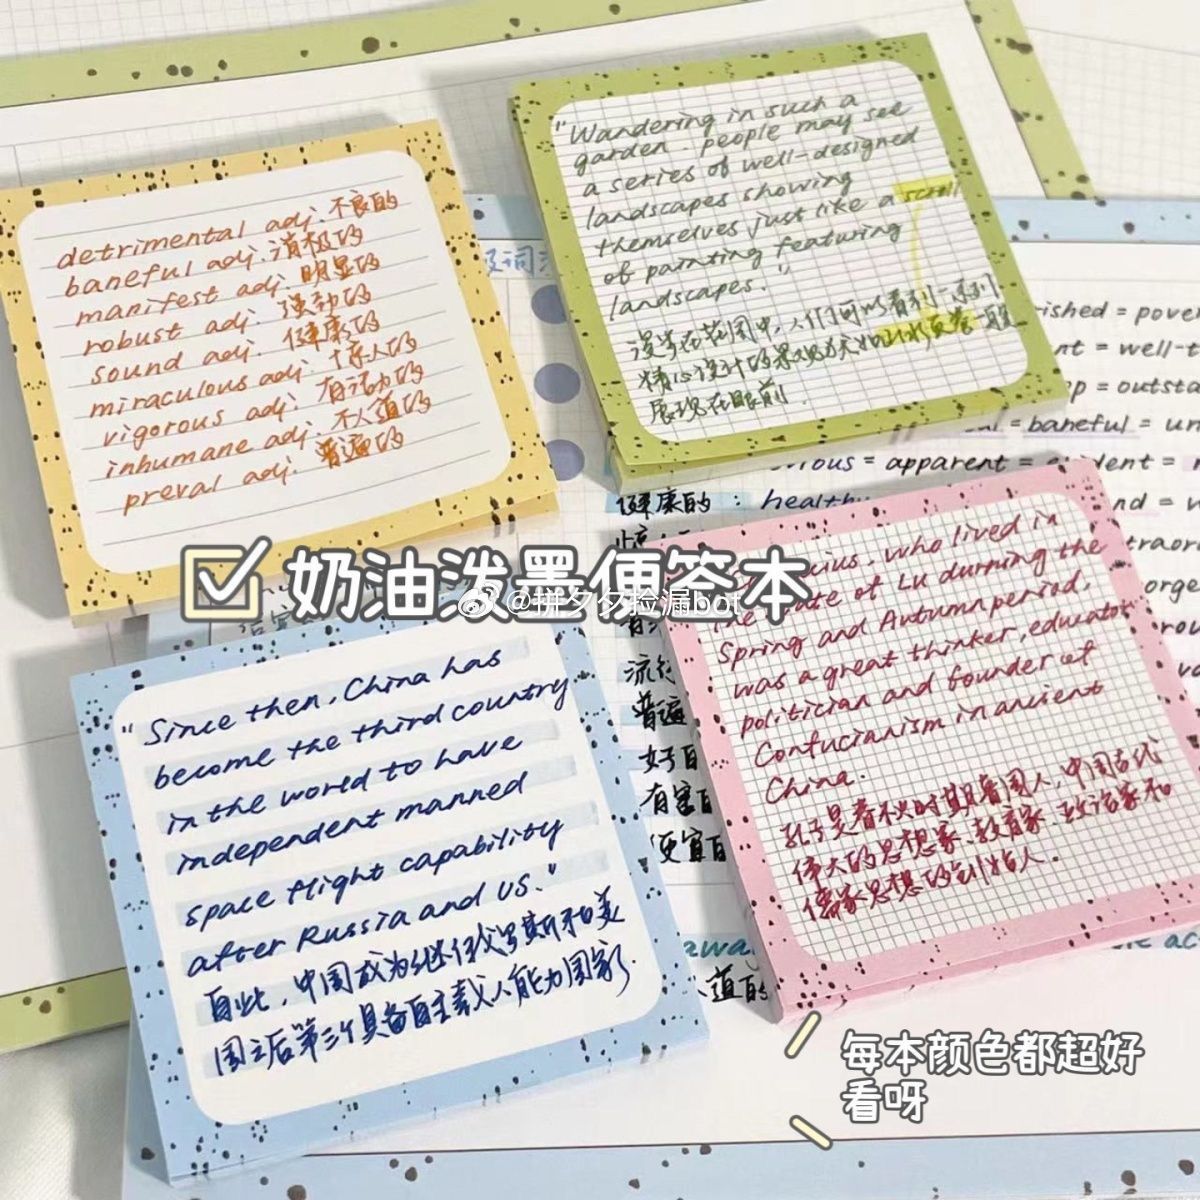 detrimental adj. 不良的
baneful adj. 消极的
manifest adj. 明显的
robust adj. 强劲的
sound adj. 健康的
miraculous adj. 惊人的
vigorous adj. 有活力的
inhumane adj. 不人道的
preval adj. 普遍的
"Wandering in such a
garden. people may see
a series of well-designed
landscapes showing
themselves just like a scroll
of painting featuring
landscapes."
漫步在花园中,人们可以看到一系列
精心设计的景观犹如山水画卷一般
展现在眼前.
ished = pover
nt = well-t
p = outsta
= baneful = un
vious = apparent = evident =
健康的 : healthy
奶油泼墨便签本
@拼夕夕捡漏bot
"Since then, China has
become the third country
in the world to have
independent manned
space flight capability
after Russia and US."
自此,中国成为继俄罗斯和美
国之后第三个具备自主载人能力国家.
ius, who lived in
the state of Lu durning the
Spring and Autumn period,
was a great thinker, educator
politician and founder of
Confucianism in ancient
China.
孔子是春秋时期鲁国人,中国古代
伟大的思想家、教育家、政治家和
儒家思想的创始人.
普遍
好自
有害自
便宜自
道的
每本颜色都超好
看呀